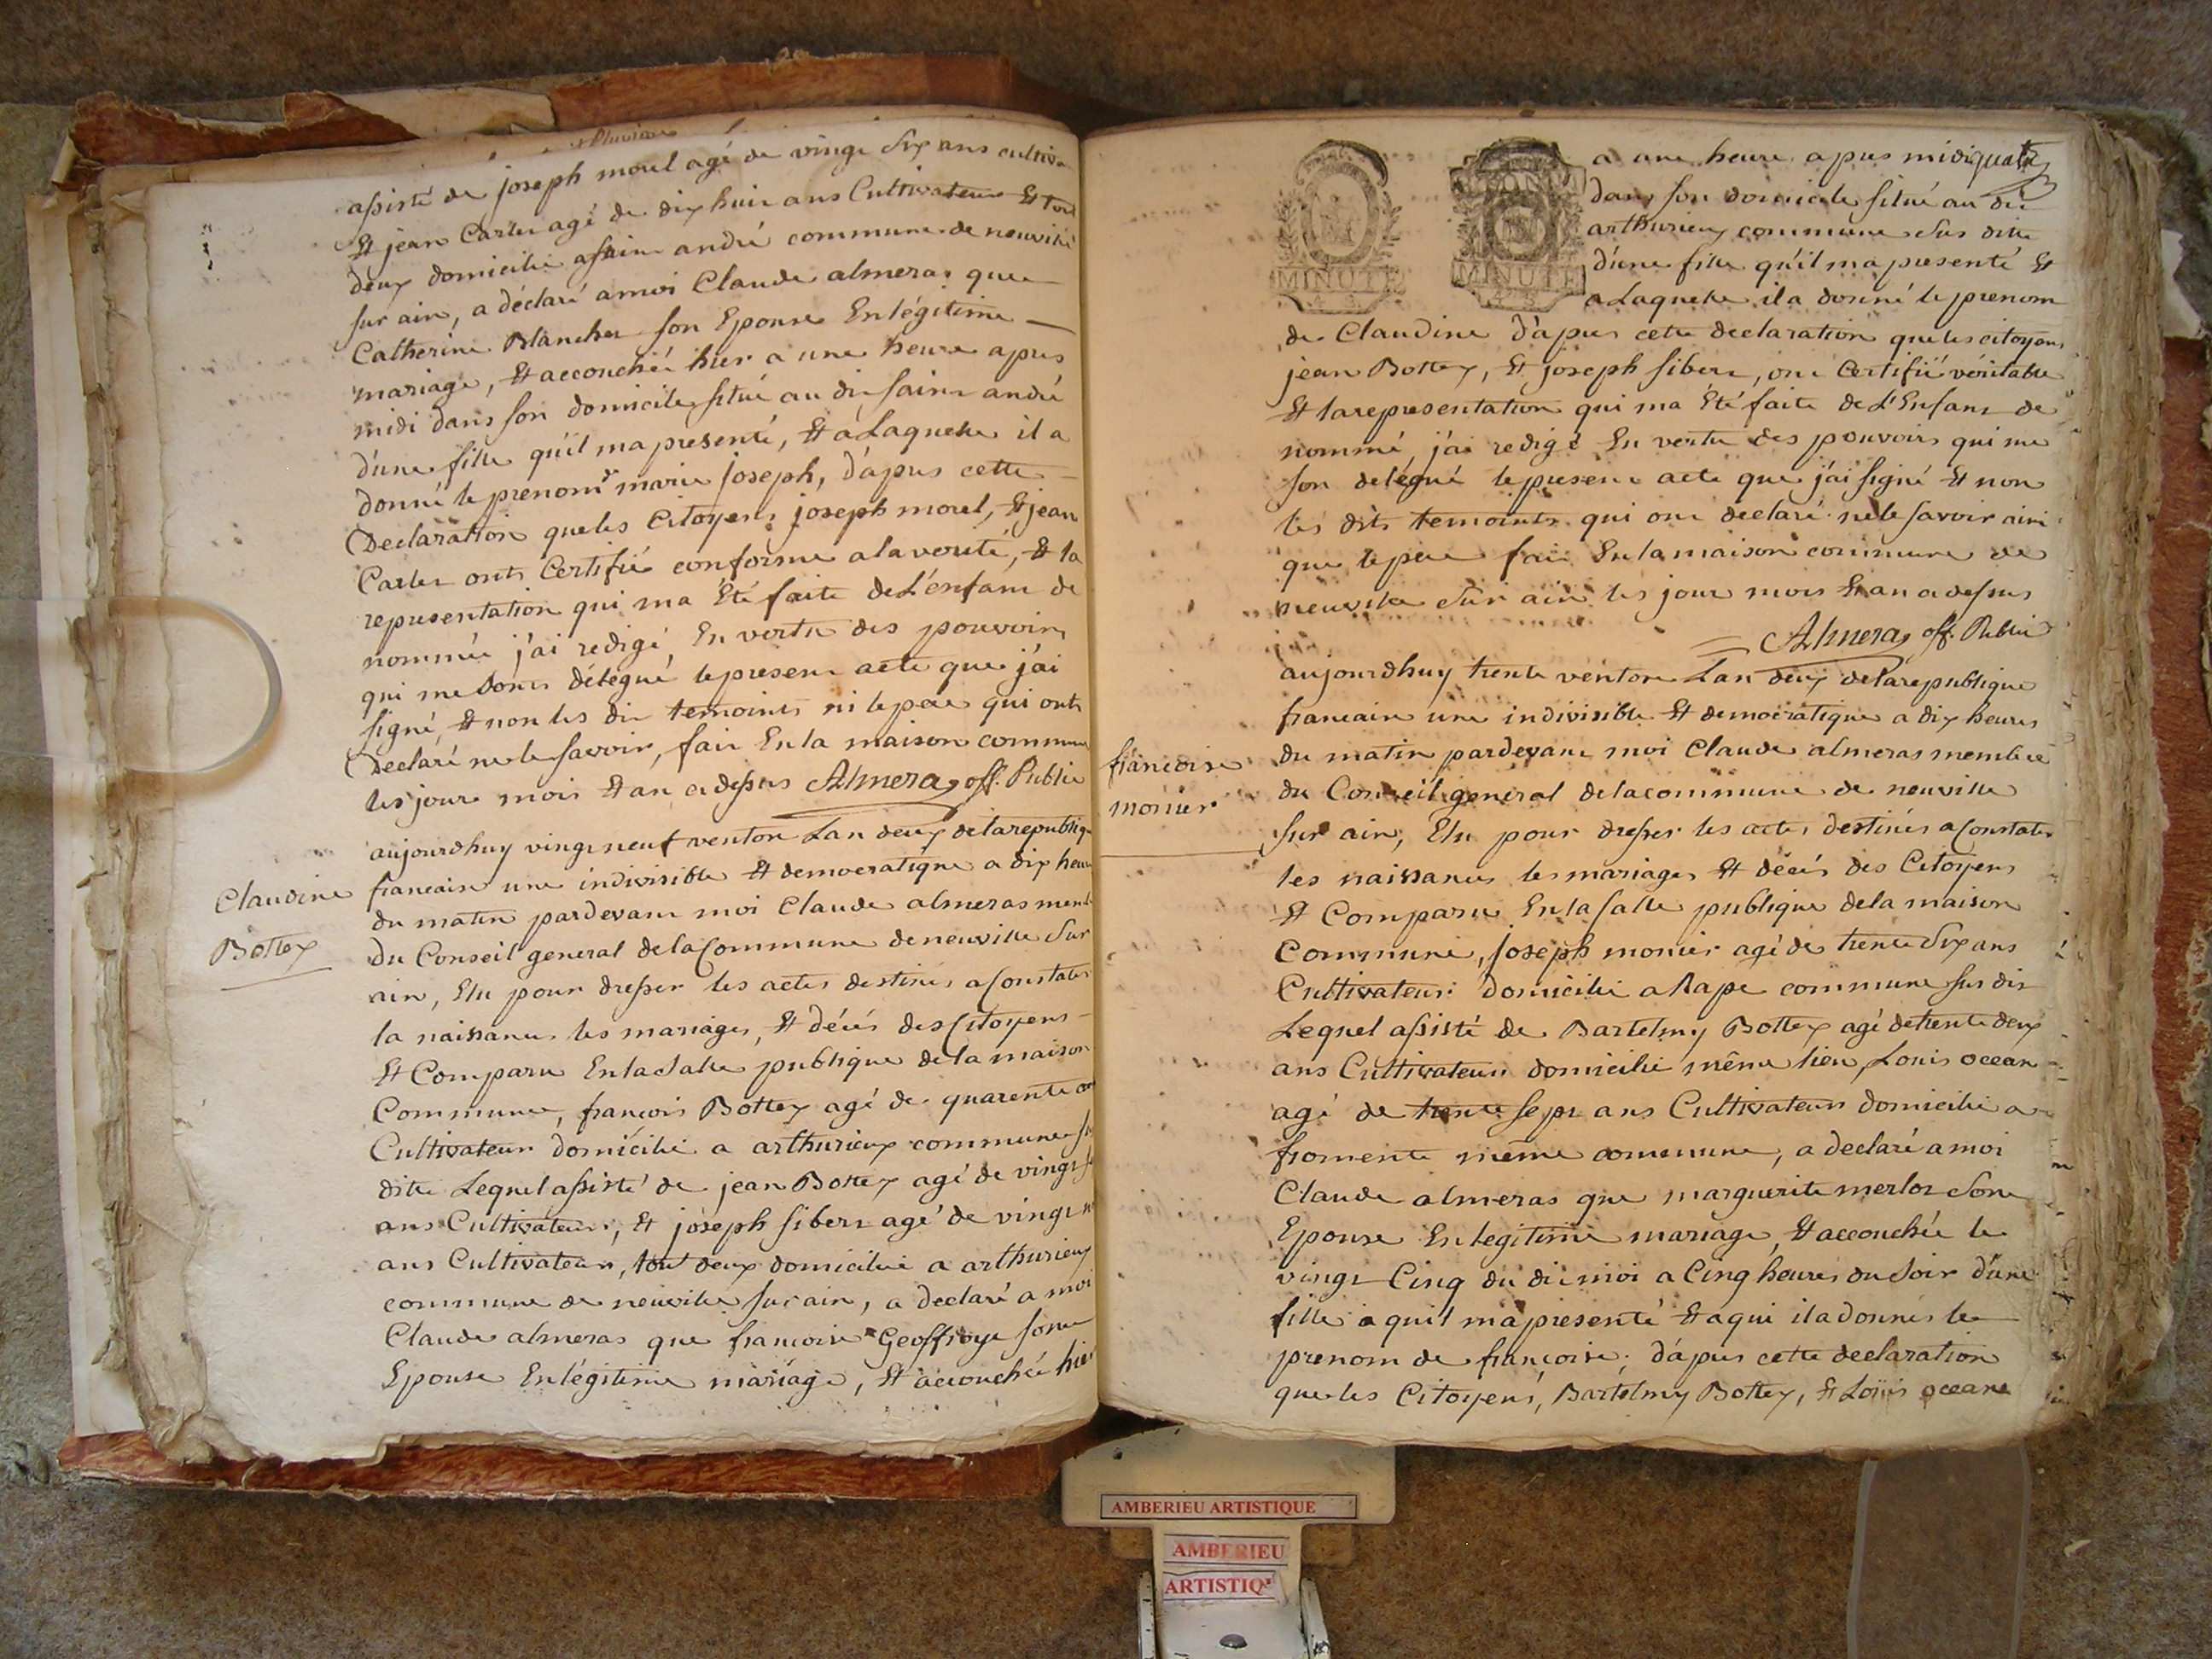 assisté de joseph morel agé de vingt six ans cultiva
Et jean Carler agé de dix huit ans Cultivateur Et tout
deux domicilié asaint andré commune de neuville
sur ain, a déclaré amoi Claude almeras que
Catherine Blanchet son Epouse En légitime
mariage, Et accouchée hier a une heure apres
midi dans son domicile situé au dit saint andré
d'une fille qu'il ma présenté, Et a Laquelle il a
donné le prenom marie joseph, d'apres cette
Declaration que les Citoyens joseph morel, Et jean
Carler onts Certifié conforme a la verité, Et la
representation qui ma Eté faite de L'enfant de
nommée j'ai redigé, En vertu des pouvoirs
qui me Sonts délégué le present acte que j'ai
signé, Et non les dit temoints ni le pere qui onts
Déclaré ne le savoir, fait En la maison commune
les jour mois Et an ci dessus Almeras off. Public
Claudine
Bottex
aujourdhuy vingt neuf ventose Lan deux de la republiq
francaise une indivisible Et democratique a dix heur
du matin pardevant moi Claude almeras memb
du Conseil general de la Commune de neuville Sur
ain, Elu pour dresser les actes destinés a Constater
la naissances les mariages, Et décés des Citoyens
Et Comparu En la Salle publique de la maison
Commune, françois Bottex agé de quarente ans
Cultivateur domicilié a arthurieux commune su
dite Lequel assisté de jean Bottex agé de vingt
ans Cultivateur, Et joseph sibert agé de vingt
ans Cultivateur, tout deux domicilié a arthurieux
commune de neuville sur ain, a declaré a moi
Claude almeras que francoise Geoffroye sone
Epouse En légitime mariage, Et accouchée hier
a une heure apres midi quatre
dans son domicile situé au dit
arthurieux commune Sus dite
d'une fille qu'il ma presenté Et
a Laquelle il a donné le prenom
MINUTE
MINUTE
de Claudine d'apres cette declaration que les citoyens
jean Bottex, Et joseph sibert, ont Certifié véritable
Et la representation qui ma Eté faite de L'Enfant de
nommé, j'ai redigé En vertu des pouvoirs qui me
son delégué le present acte que j'ai signé Et non
les dits temoints qui ont declaré ne le savoir ainsi
que le pere fait En la maison commune de
neuville Sur ain les jour mois Et an ci dessus
Almeras off. Public
francoise
monier
aujourdhuy trente ventose Lan deux de la republique
francaise une indivisible Et democratique a dix heures
du matin pardevant moi Claude almeras membre
du Conseil general de la commune de neuville
sur ain, Elu pour dresser les actes destinés a Constater
les naissances les mariages Et décés des Citoyens
Et Comparu En la salle publique de la maison
Commune, joseph monier agé de trente Six ans
Cultivateur domicilié a Rape commune sus dit
Lequel assisté de Bartelmy Bottex agé de trente deux
ans Cultivateur domicilié même lieu, Louis ocean
agé de trente sept ans Cultivateur domicilié a
fromente même commune, a declaré a moi
Claude almeras que marguerite merlos Sone
Epouse En legitime mariage, Et accouchée le
vingt Cinq du dit moi a Cinq heures du Soir d'une
fille a quil ma presenté Et a qui il a donnés le
prenom de françoise, d'apres cette declaration
que les Citoyens, Bartelmy Bottex, Et Louis oceane
AMBERIEU ARTISTIQUE
AMBERIEU
ARTISTIQ